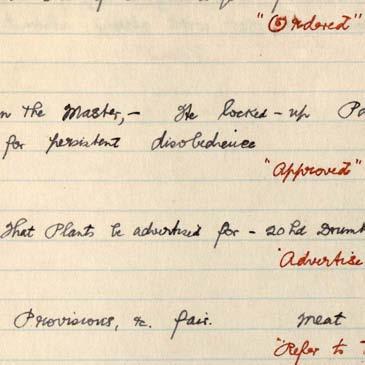 "Ordered"
The Master,- He locked-up
for persistent disobedience
"Approved"
That Plants be advertised for - 20hd
"Advertise
Provisions, &c. fair. Meat
"Refer to